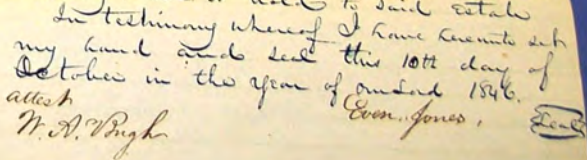 or hold to said Estate
In testimony whereof I have hereunto set
my hand and seal this 10th day of
October in the year of our Lord 1846.
attest
Even. Jones. Seal
W. A. Pugh